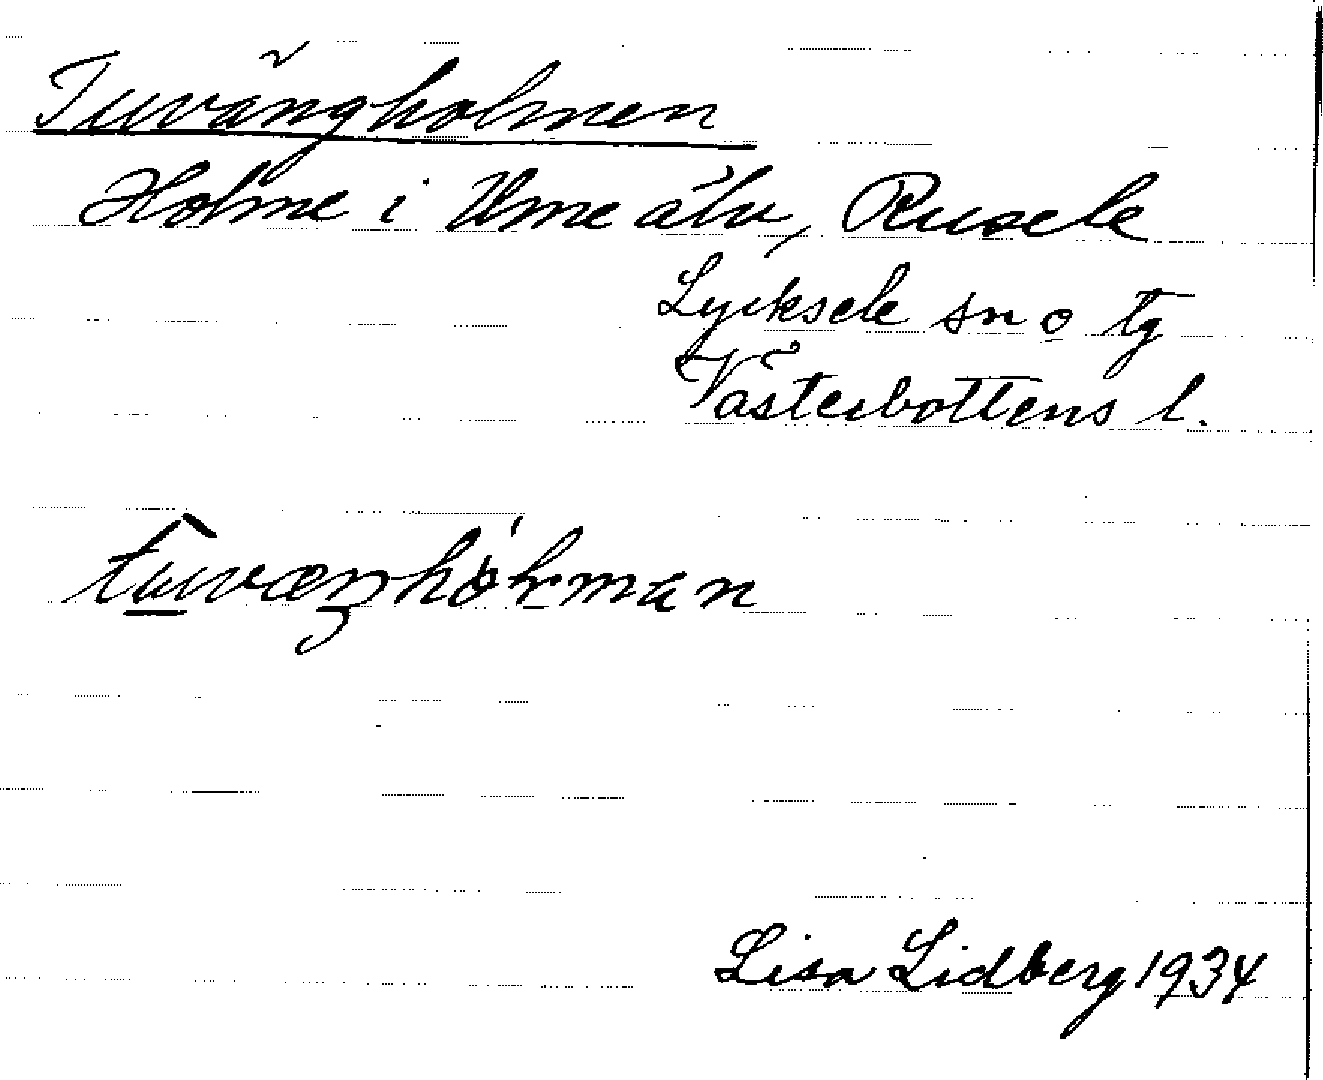 Tuvängholmen
Holme i Ume älv, Rusele
Lycksele sn o tg
Västerbottens l.
Lisa Lidberg 1934